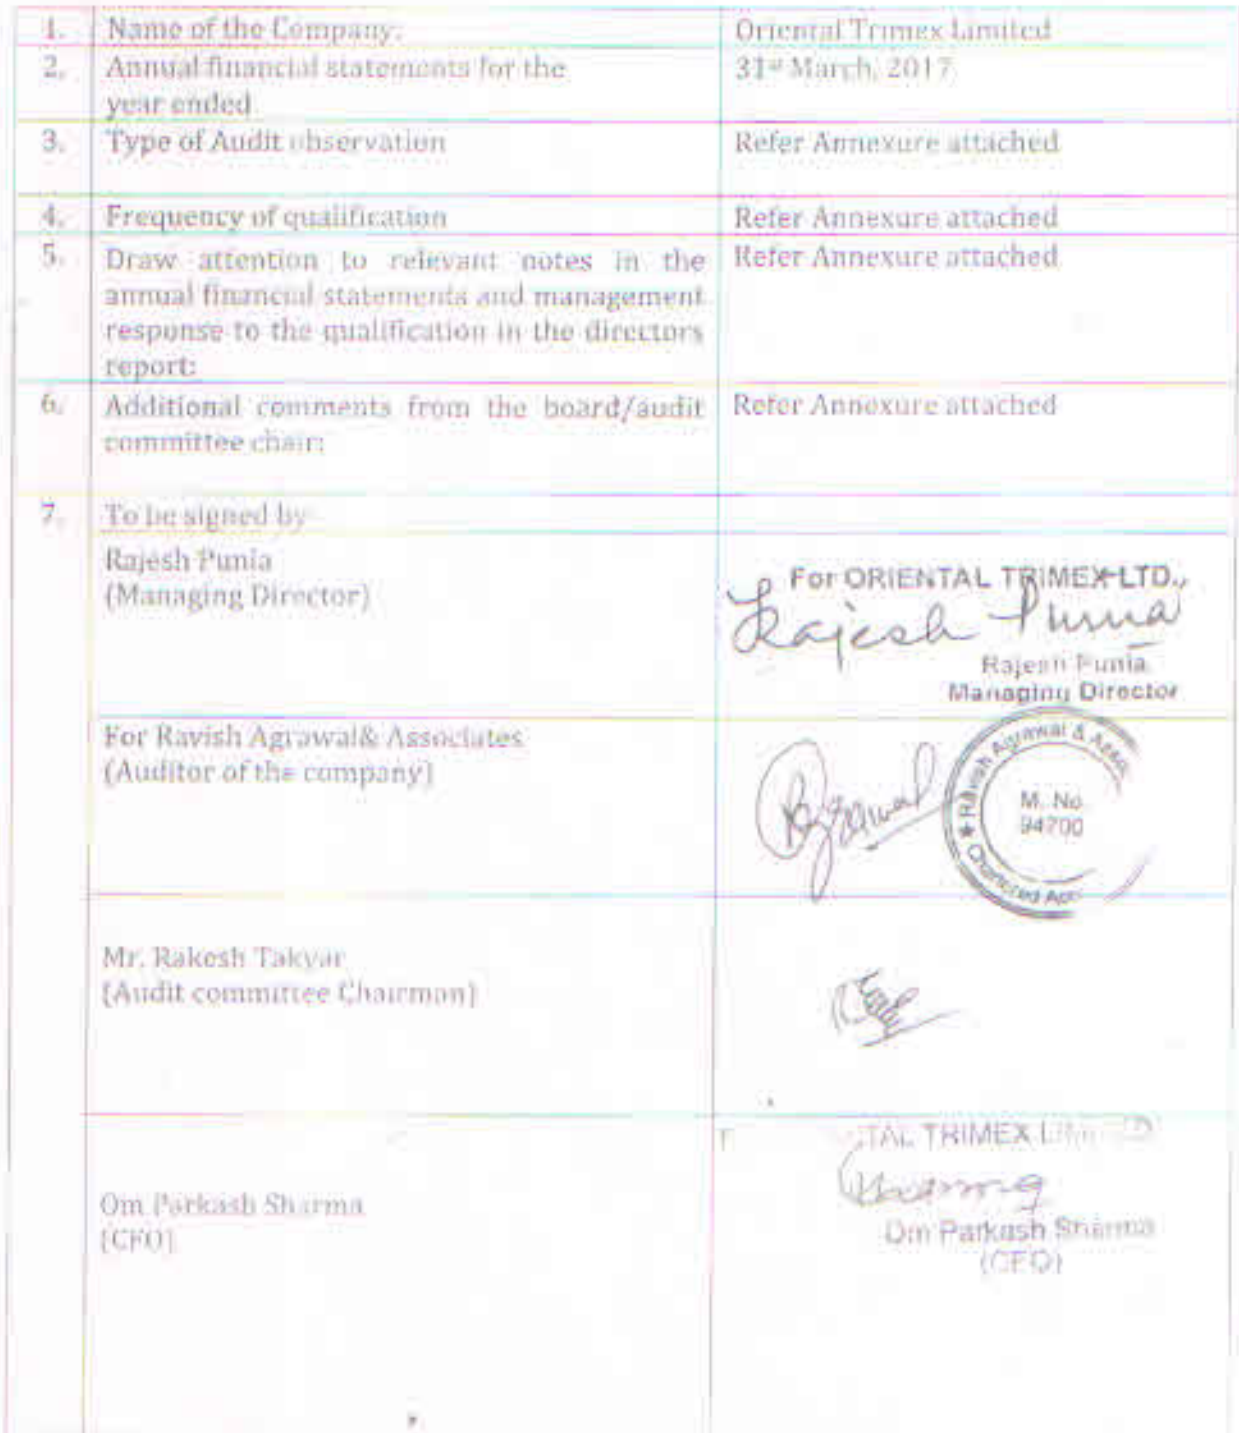 1. Name of the Company: Oriental Trimex Limited
2. Annual financial statements for the 31st March, 2017
year ended
3. Type of Audit observation Refer Annexure attached
4. Frequency of qualification Refer Annexure attached
5. Draw attention to relevant notes in the Refer Annexure attached
annual financial statements and management
response to the qualification in the directors
report:
6. Additional comments from the board/audit Refer Annexure attached
committee chair:
7. To be signed by
Rajesh Punia
(Managing Director)
For ORIENTAL TRIMEX LTD.,
Rajesh Punia
Rajesh Punia
Managing Director
For Ravish Agrawal& Associates
(Auditor of the company)
Ravish Agrawal & Asso
M. No
94700
Chartered Acc
Mr. Rakesh Takyar
(Audit committee Chairman)
TAL TRIMEX LIMITED
Om Parkash Sharma
(CFO)
Om Parkash Sharma
(CFO)